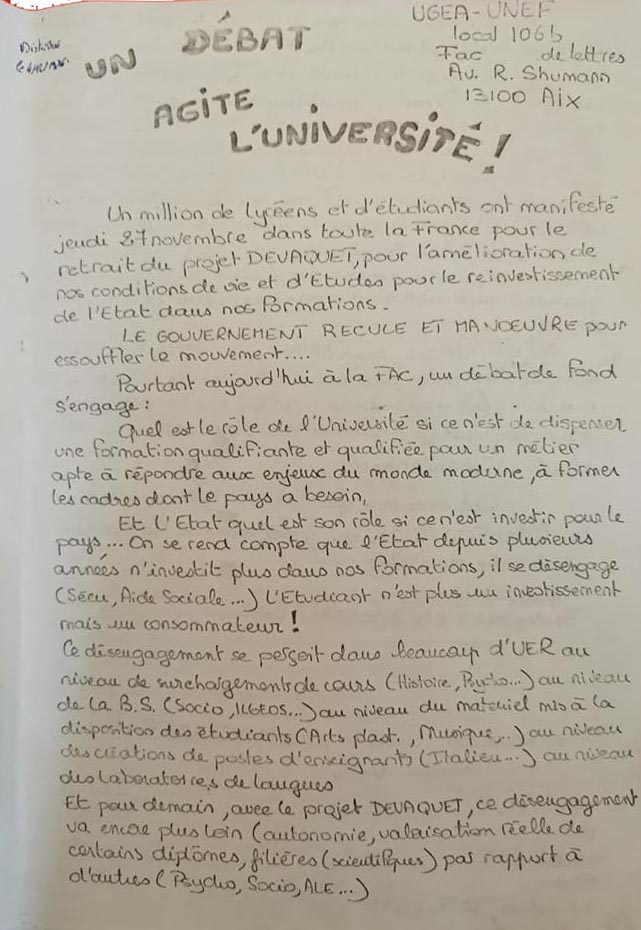 UGEA-UNEF
local 106b
Fac de lettres
Av. R. Shumann
13100 Aix
UN DÉBAT
AGITE
L'UNIVERSITÉ !
Un million de lycéens et d'étudiants ont manifesté
jeudi 27 novembre dans toute la France pour le
retrait du projet DEVAQUET, pour l'amélioration de
nos conditions de vie et d'Etudes pour le reinvestissement
de l'Etat dans nos formations.
LE GOUVERNEMENT RECULE ET MANOEUVRE pour
essouffler le mouvement....
Pourtant aujourd'hui à la FAC, un débat de fond
s'engage :
Quel est le rôle de l'Université si ce n'est de dispenser
une formation qualifiante et qualifiée pour un métier
apte à répondre aux enjeux du monde moderne, à former
les cadres dont le pays a besoin,
Et L'Etat quel est son rôle si ce n'est investir pour le
pays... On se rend compte que l'Etat depuis plusieurs
années n'investit plus dans nos formations, il se désengage
(Sécu, Aide Sociale...) L'Etudiant n'est plus un investissement
mais un consommateur !
Ce désengagement se perçoit dans beaucoup d'UER au
niveau de surchargements de cours (Histoire, Psycho...) au niveau
de la B.S. (Socio, ...) au niveau du matériel mis à la
disposition des étudiants (Arts plast., Musique,..) au niveau
des créations de postes d'enseignants (Italien...) au niveau
des laboratoires de langues
Et pour demain, avec le projet DEVAQUET, ce désengagement
va encore plus loin (autonomie, valorisation réelle de
certains diplômes, filières (scientifiques) par rapport à
d'autres (Psycho, Socio, ALE...)